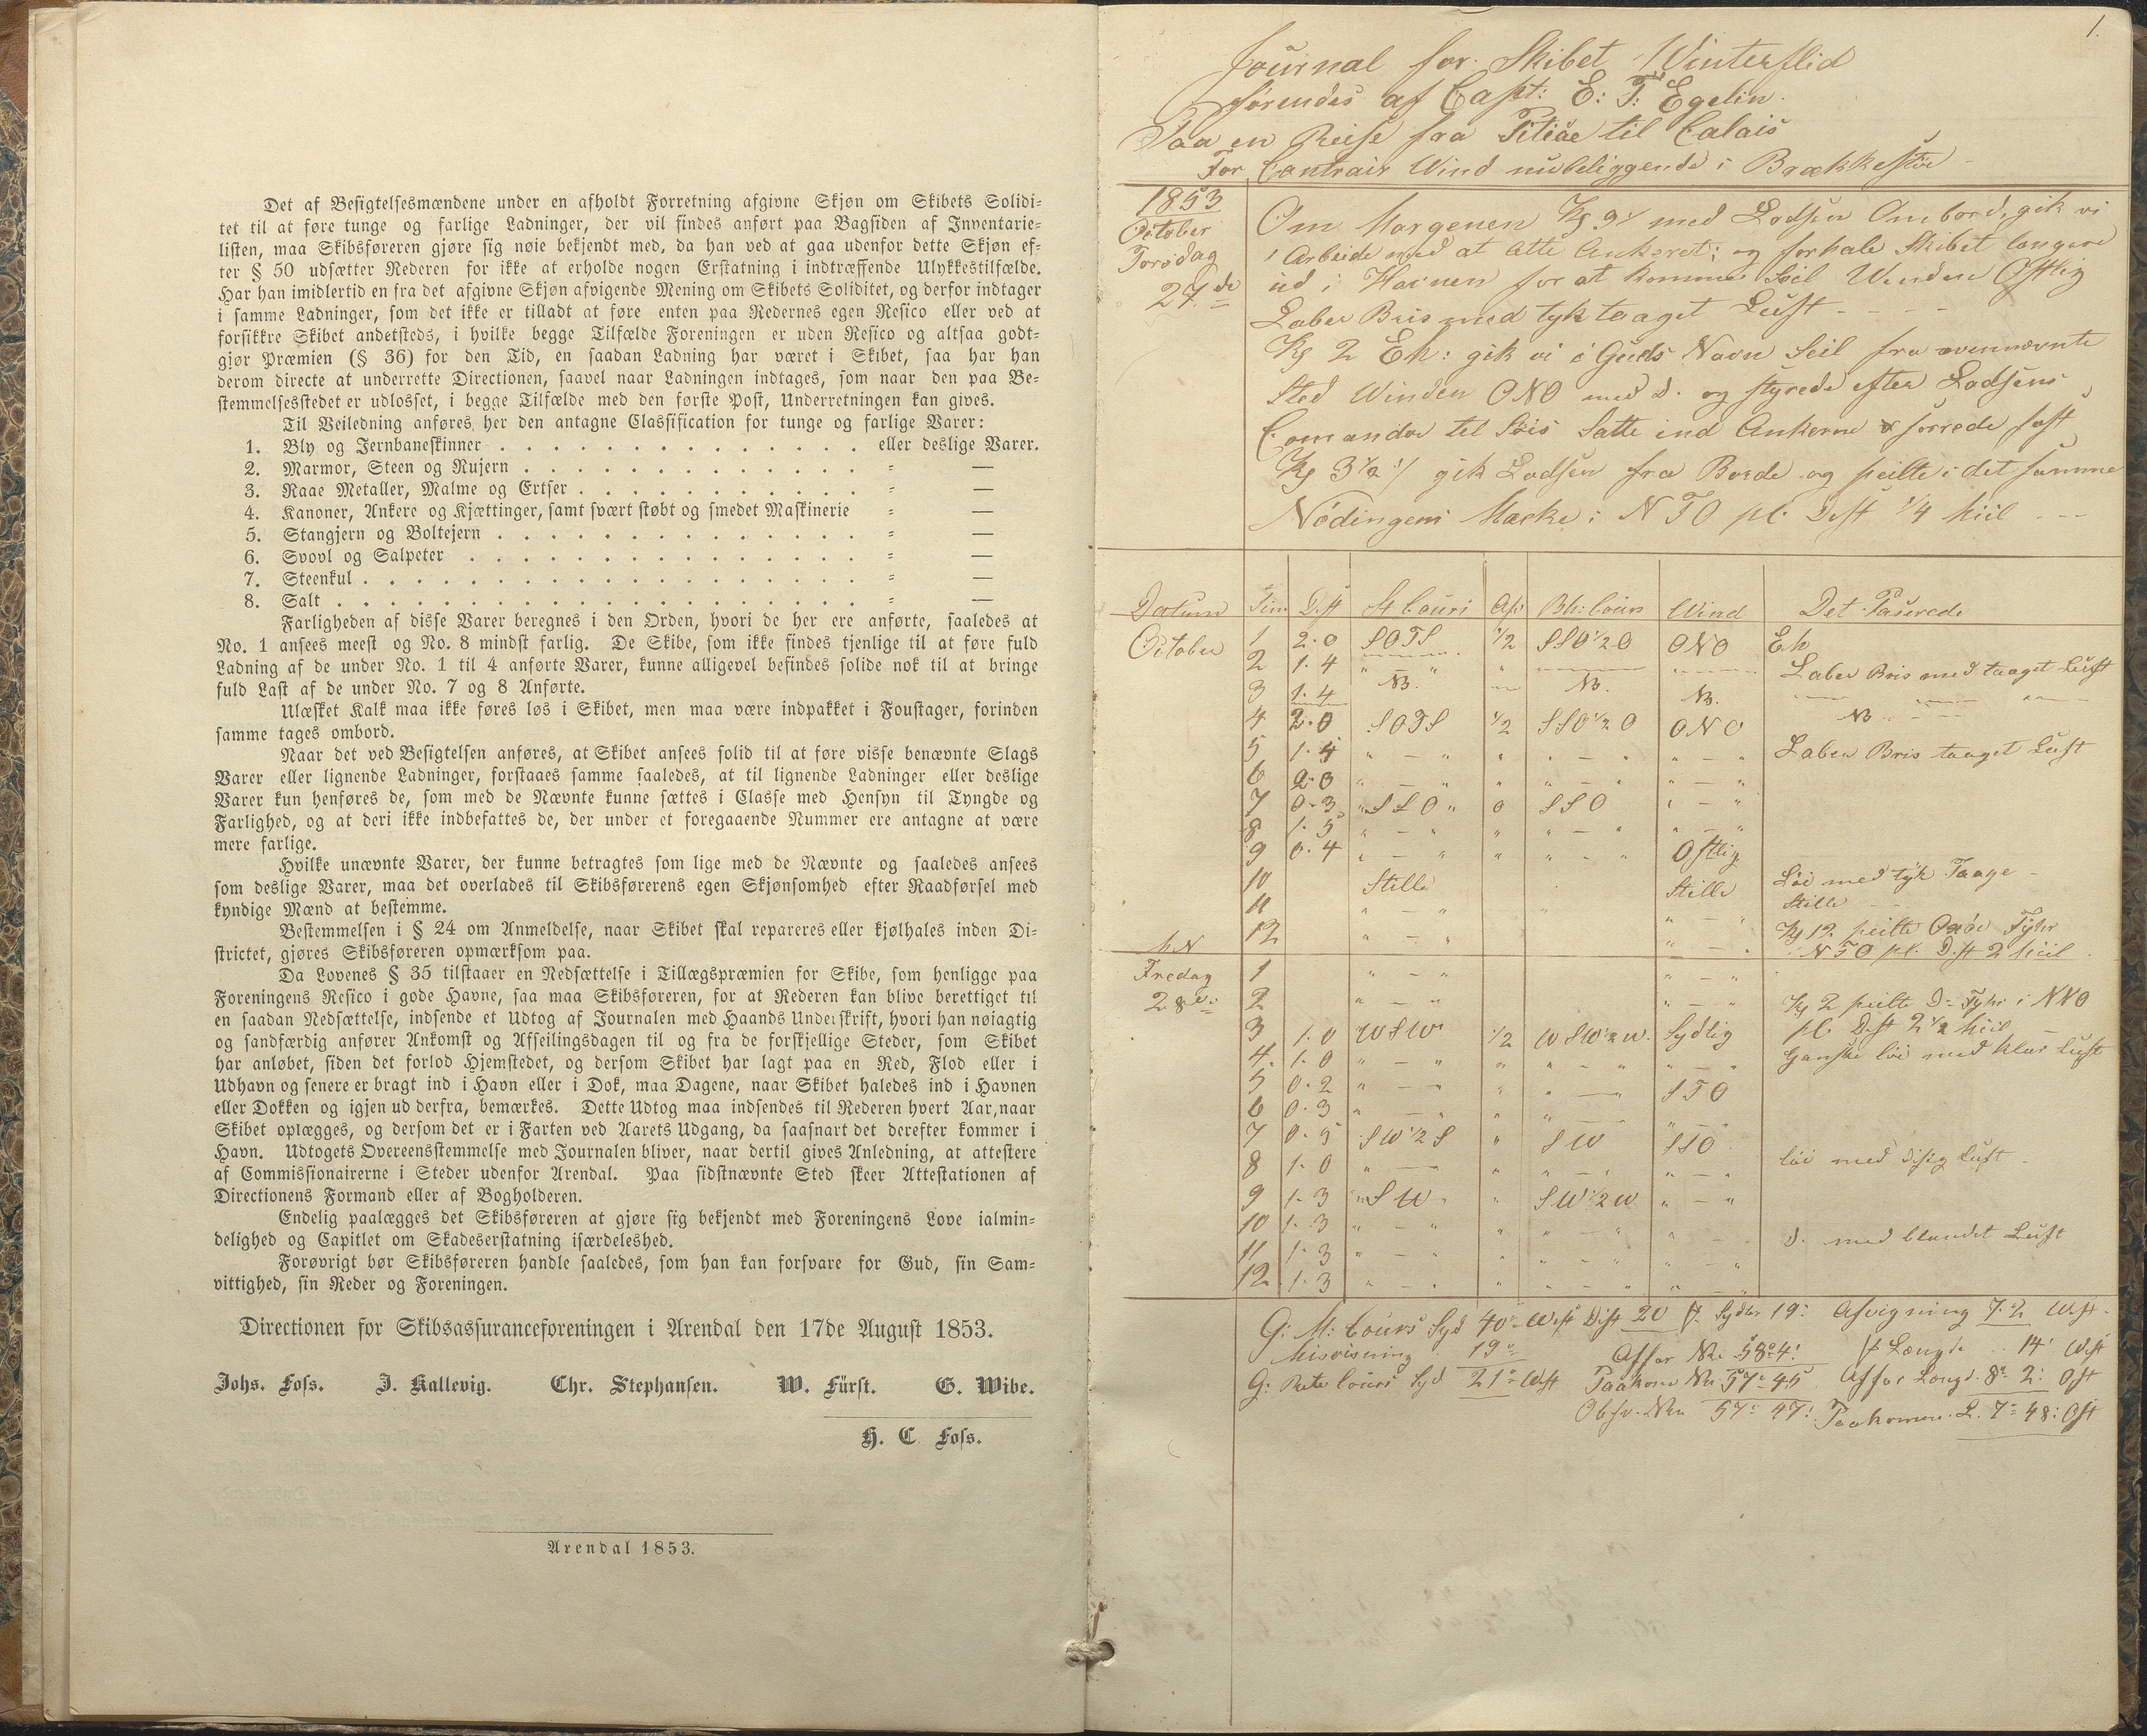 Det af Besigtelsesmændene under en afholdt Forretning afgivne Skjøn om Skibets Solidi-
tet til at føre tunge og farlige Ladninger, der vil findes anført paa Bagsiden af Inventarie-
listen, maa Skibsføreren gjøre sig nøie bekjendt med, da han ved at gaa udenfor dette Skjøn ef-
ter § 50 udsætter Rederen for ikke at erholde nogen Erstatning i indtræffende Ulykkestilfælde.
Har han imidlertid en fra det afgivne Skjøn afvigende Mening om Skibets Soliditet, og derfor indtager
i samme Ladninger, som det ikke er tilladt at føre enten paa Redernes egen Resico eller ved at
forsikkre Skibet andetsteds, i hvilke begge Tilfælde Foreningen er uden Resico og altsaa godt-
gjør Præmien (§ 36) for den Tid, en saadan Ladning har været i Skibet, saa har han
derom directe at underrette Directionen, saavel naar Ladningen indtages, som naar den paa Be-
stemmelsesstedet er udlosset, i begge Tilfælde med den første Post, Underretningen kan gives.
Til Veiledning anføres her den antagne Classification for tunge og farlige Varer:
1. Bly og Jernbaneskinner . . . . . . . . . . . . . . eller deslige Varer.
2. Marmor, Steen og Rujern . . . . . . . . . . . . . = —
3. Raae Metaller, Malme og Ertser . . . . . . . . . . . = —
4. Kanoner, Ankere og Kjættinger, samt svært støbt og smedet Maskinerie = —
5. Stangjern og Boltejern . . . . . . . . . . . . . . = —
6. Svovl og Salpeter . . . . . . . . . . . . . . . = —
7. Steenkul . . . . . . . . . . . . . . . . . . . = —
8. Salt . . . . . . . . . . . . . . . . . . . . = —
Farligheden af disse Varer beregnes i den Orden, hvori de her ere anførte, saaledes at
No. 1 ansees meest og No. 8 mindst farlig. De Skibe, som ikke findes tjenlige til at føre fuld
Ladning af de under No. 1 til 4 anførte Varer, kunne alligevel befindes solide nok til at bringe
fuld Last af de under No. 7 og 8 Anførte.
Ulæsket Kalk maa ikke føres løs i Skibet, men maa være indpakket i Foustager, forinden
samme tages ombord.
Naar det ved Besigtelsen anføres, at Skibet ansees solid til at føre visse benævnte Slags
Varer eller lignende Ladninger, forstaaes samme saaledes, at til lignende Ladninger eller deslige
Varer kun henføres de, som med de Nævnte kunne sættes i Classe med Hensyn til Tyngde og
Farlighed, og at deri ikke indbefattes de, der under et foregaaende Nummer ere antagne at være
mere farlige.
Hvilke unævnte Varer, der kunne betragtes som lige med de Nævnte og saaledes ansees
som deslige Varer, maa det overlades til Skibsførerens egen Skjønsomhed efter Raadførsel med
kyndige Mænd at bestemme.
Bestemmelsen i § 24 om Anmeldelse, naar Skibet skal repareres eller kjølhales inden Di-
strictet, gjøres Skibsføreren opmærksom paa.
Da Lovenes § 35 tilstaaer en Nedsættelse i Tillægspræmien for Skibe, som henligge paa
Foreningens Resico i gode Havne, saa maa Skibsføreren, for at Rederen kan blive berettiget til
en saadan Nedsættelse, indsende et Udtog af Journalen med Haands Underskrift, hvori han nøiagtig
og sandfærdig anfører Ankomst og Afseilingsdagen til og fra de forskjellige Steder, som Skibet
har anløbet, siden det forlod Hjemstedet, og dersom Skibet har lagt paa en Red, Flod eller i
Udhavn og senere er bragt ind i Havn eller i Dok, maa Dagene, naar Skibet haledes ind i Havnen
eller Dokken og igjen ud derfra, bemærkes. Dette Udtog maa indsendes til Rederen hvert Aar, naar
Skibet oplægges, og dersom det er i Farten ved Aarets Udgang, da saasnart det derefter kommer i
Havn. Udtogets Overeensstemmelse med Journalen bliver, naar dertil gives Anledning, at attestere
af Commissionairerne i Steder udenfor Arendal. Paa sidstnævnte Sted skeer Attestationen af
Directionens Formand eller af Bogholderen.
Endelig paalægges det Skibsføreren at gjøre sig bekjendt med Foreningens Love ialmin-
delighed og Capitlet om Skadeserstatning isærdeleshed.
Forøvrigt bør Skibsføreren handle saaledes, som han kan forsvare for Gud, sin Sam-
vittighed, sin Reder og Foreningen.
Directionen for Skibsassuranceforeningen i Arendal den 17de August 1853.
Johs. Foss. J. Kallevig. Chr. Stephansen. W. Fürst. G. Wibe.
H. C Foss.
Arendal 1853.
1.
Journal for Skibet Winterflid
førendes af Capt: E: T: Egelin.
Paa en Reise fra Pitiae til Calais
For Contrair Wind nubeliggende i Brækkestøe
1853
October
Torsdag
27de
Om Morgenen Kl 9 med Lodsen Ombord, gik vi
i Arbeide med at lette Ankeret; og forhale Skibet længere
ud i Havnen for at komme Seil Winden Ostlig
Laber Bris med tyk taaget Luft - - -
Kl 2 Eh: gik vi i Guds Navn Seil fra ovennævnte
Sted Winden ONO med d. og styrede efter Lodsens
Comando til Søis Satte ind Ankerne & sorrede fast
Kl 3 1/2 gik Lodsen fra Borde og peilte i det samme
Nödingens Mærke i NTO pl. Dist 1/4 Miil - -
Datum Tim Dist St Cours Af: Bh: Cours Wind Det Paserede
October 1 2.0 SOTS 1/2 SSO 1/2 O ONO Eh
2 1.4 " - " " Laber Bris med taaget Luft
3 1.4 NB. NB. NB.
4 2.0 SOTS 1/2 SSO 1/2 O ONO NB
5 1.4 " - " " " - " " - " Laber Bris taaget Luft
6 2.0 " - " " " - " " - "
7 0.3 SSO 0 SSO " - "
8 1.5 " - " " " - " " - "
9 0.4 " - " " " - " Ostlig
10 Stille Stille Löi med tyk Taage
11 " - " " - " Stille
12 " - " " - " Kl 12 peilte Oxöe Fyhr
NTO pl. Dist 2 Miil
Fredag 1 " - " " - "
28de 2 " - " " - " Kl 2 peilte D: Fyhr i NNO
3 1.0 WSW 1/2 WSW 1/2 W. Sydlig pl. Dist 2 1/2 Miil
4 1.0 " - " " " - " " - " Ganske löi med klar Luft
5 0.2 " - " " " - " STO
6 0.3 " - " " " - " " - "
7 0.5 SW 1/2 S " SW SSO
8 1.0 " - " " " - " " - " löi med disig Luft
9 1.3 SW " SW 1/2 W " - "
10 1.3 " - " " " - " " - "
11 1.3 " - " " " - " " - " d. med blandet Luft
12 1.3 " - " " " - " " - "
G: M: Cours Syd 40° West Dist 20 Afvigning West
Misvisning 19° Affar Længde 14' West
G: Rete Cours Syd 21° West Paakomne 57° 45 Affar Længd. 8° 2: Ost
Obsr. 57° 47' Paakomne L. 7° 48: Ost